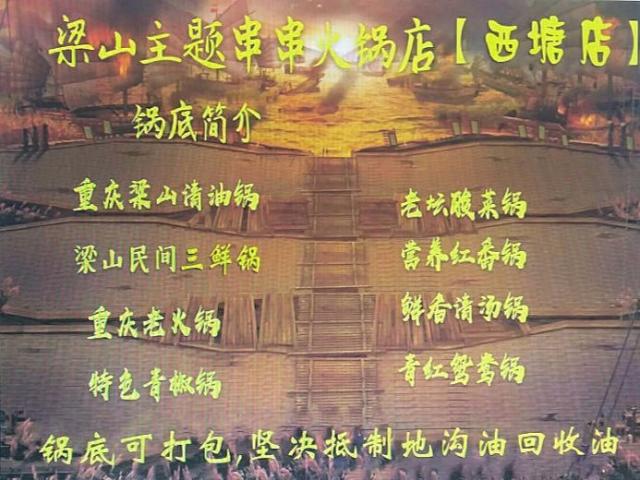 梁山主题串串火锅店【西塘店】
锅底简介
重庆梁山清油锅
老坛酸菜锅
梁山民间三鲜锅
营养红番锅
重庆老火锅
鲜香清汤锅
特色青椒锅
青红鸳鸯锅
锅底可打包,坚决抵制地沟油回收油